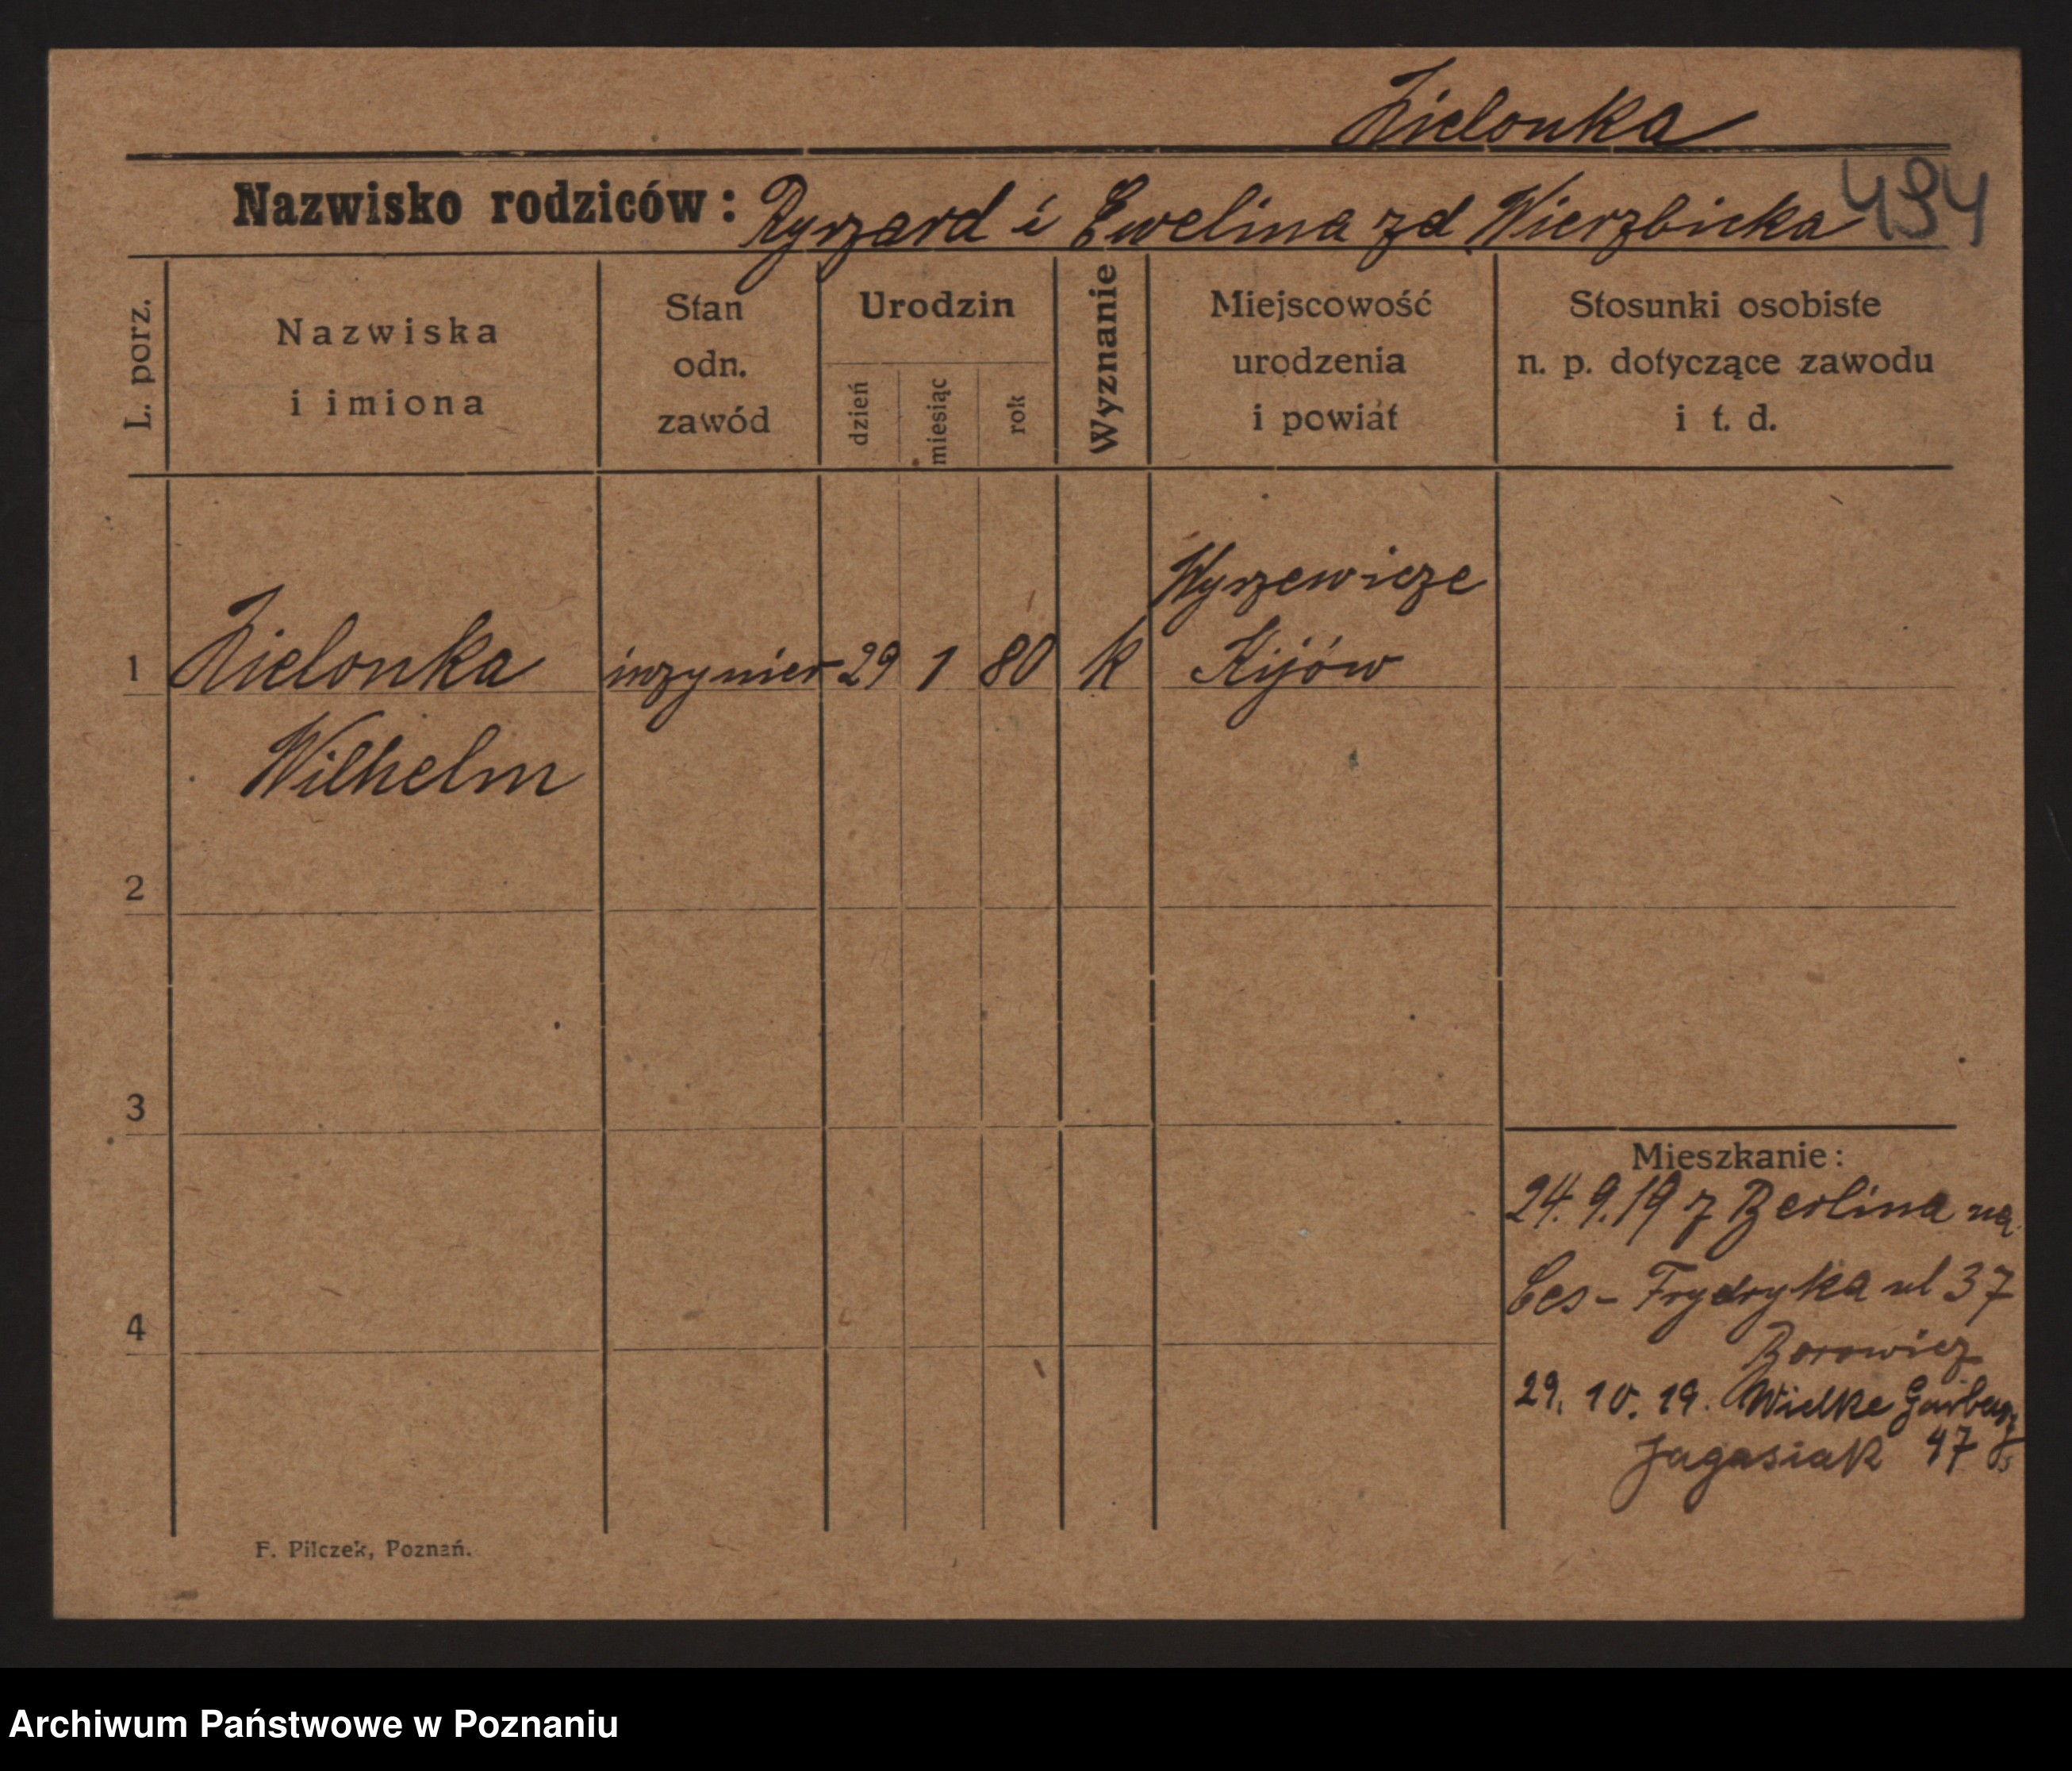 Zielonka
494
Nazwisko rodziców: Ryszard i Ewelina zd Wierzbicka
L. porz.
Nazwiska
i imiona
Stan
odn.
zawód
Urodzin
dzień
miesiąc
rok
Wyznanie
Miejscowość
urodzenia
i powiat
Stosunki osobiste
n. p. dotyczące zawodu
i t. d.
Wyszewicze
1 Zielonka inzynier 29 1 80 k Kijów
Wilhelm
2
3
Mieszkanie:
24. 9. 19 z Berlina na
Ces- Frydryka ul 37
4
Borowicz
29. 10. 19. Wielke Garbary
Jagasiak 47
F. Pilczek, Poznań.
Archiwum Państwowe w Poznaniu